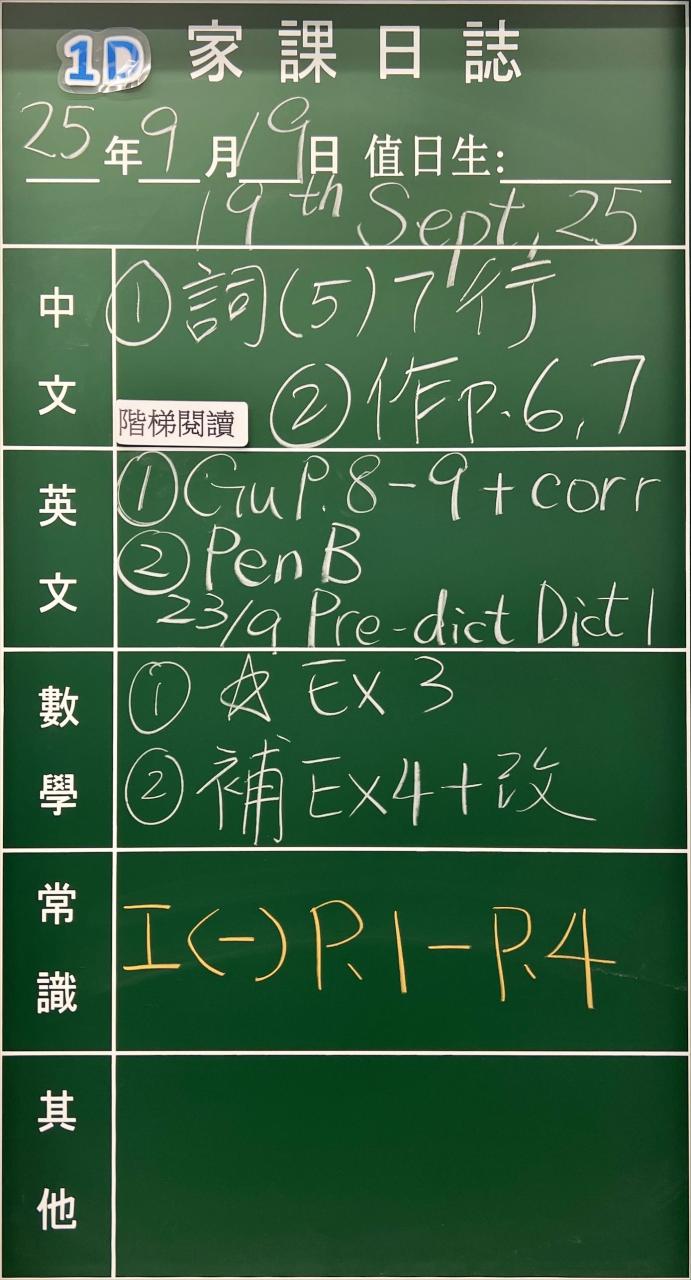 1D 家課日誌
25年9月19日 值日生:
19th Sept, 25
中文
①詞(5)7行
②作p.6,7
階梯閱讀
英文
①GuP.8-9+corr
②Pen B
23/9 Pre-dict Dict 1
數學
①☆ Ex 3
②補Ex4+改
常識
工(一)P.1-P.4
其他